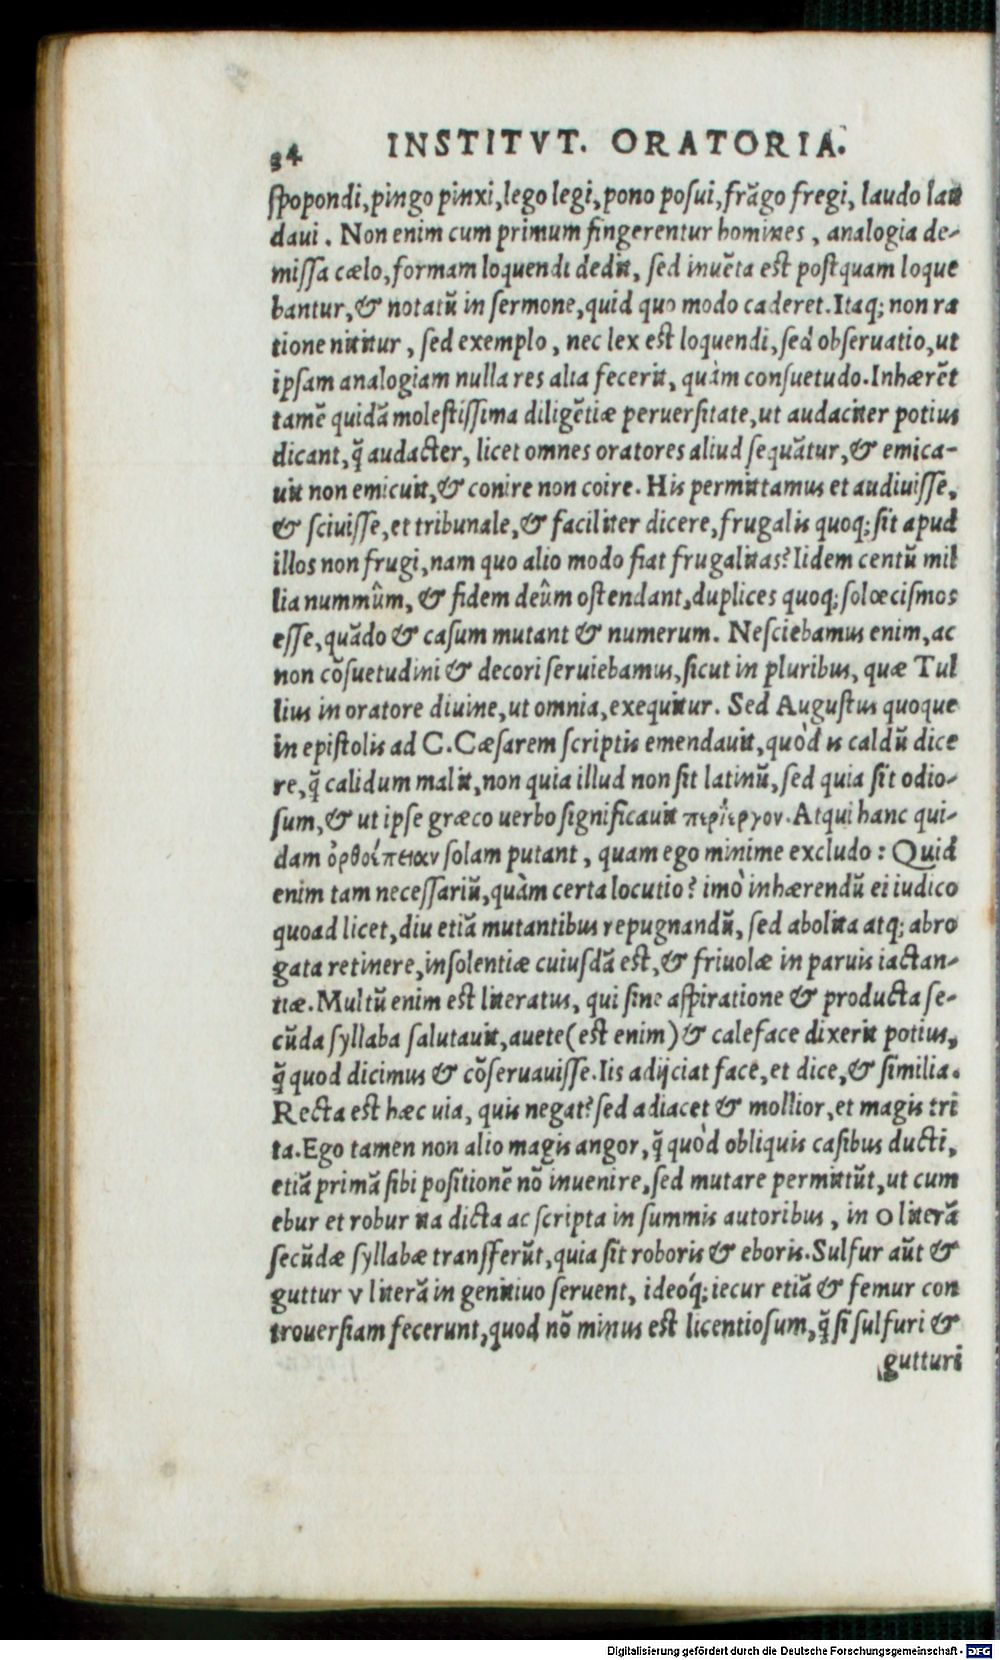 34 INSTITVT. ORATORIA.
ſpopondi,pingo pinxi,lego legi,pono poſui,frãgo fregi, laudo lau
daui. Non enim cum primum fingerentur homines, analogia de-
miſſa cælo,formam loquendi dedit, ſed inuẽta eſt poſtquam loque
bantur,& notatũ in ſermone,quid quo modo caderet.Itaq; non ra
tione nititur, ſed exemplo, nec lex eſt loquendi, ſed obſeruatio,ut
ipſam analogiam nulla res alia fecerit, quàm conſuetudo.Inhærẽt
tamẽ quidã moleſtiſſima diligẽtiæ peruerſitate,ut audaciter potius
dicant,q̃ audacter, licet omnes oratores aliud ſequãtur,& emica-
uit non emicuit,& conire non coire. His permittamus et audiuiſſe,
& ſciuiſſe,et tribunale,& faciliter dicere,frugalis quoq; ſit apud
illos non frugi,nam quo alio modo fiat frugalitas? Iidem centũ mil
lia nummûm, & fidem deûm oſtendant,duplices quoq; ſolœciſmos
eſſe,quãdo & caſum mutant & numerum. Neſciebamus enim, ac
non cõſuetudini & decori ſeruiebamus,ſicut in pluribus, quæ Tul
lius in oratore diuine,ut omnia,exequitur. Sed Auguſtus quoque
in epiſtolis ad C.Cæſarem ſcriptis emendauit,quòd is caldũ dice
re,q̃ calidum malit,non quia illud non ſit latinũ,ſed quia ſit odio-
ſum,& ut ipſe græco uerbo ſignificauit περίεργον.Atqui hanc qui-
dam ὀρθοέπειαν ſolam putant, quam ego minime excludo: Quid
enim tam neceſſariũ,quàm certa locutio? imò inhærendũ ei iudico
quoad licet,diu etiã mutantibus repugnandũ, ſed abolita atq; abro
gata retinere,inſolentiæ cuiuſdã eſt,& friuolæ in paruis iactan-
tiæ.Multũ enim eſt literatus, qui ſine aſpiratione & producta ſe-
cũda ſyllaba ſalutauit,auete(eſt enim)& caleface dixerit potius,
q̃ quod dicimus & cõſeruauiſſe.Iis adijciat face,et dice,& ſimilia.
Recta eſt hæc uia, quis negat? ſed adiacet & mollior,et magis tri
ta.Ego tamen non alio magis angor,q̃ quòd obliquis caſibus ducti,
etiã primã ſibi poſitionẽ nõ inuenire,ſed mutare permittũt,ut cum
ebur et robur ita dicta ac ſcripta in ſummis autoribus, in O literã
ſecũdæ ſyllabæ transferũt,quia ſit roboris & eboris.Sulfur aũt &
guttur v literã in genitiuo ſeruent, ideoq́; iecur etiã & femur con
trouerſiam fecerunt,quod nõ minus eſt licentioſum,q̃ ſi ſulfuri &
gutturi
Digitalisierung gefördert durch die Deutsche Forschungsgemeinschaft - DFG